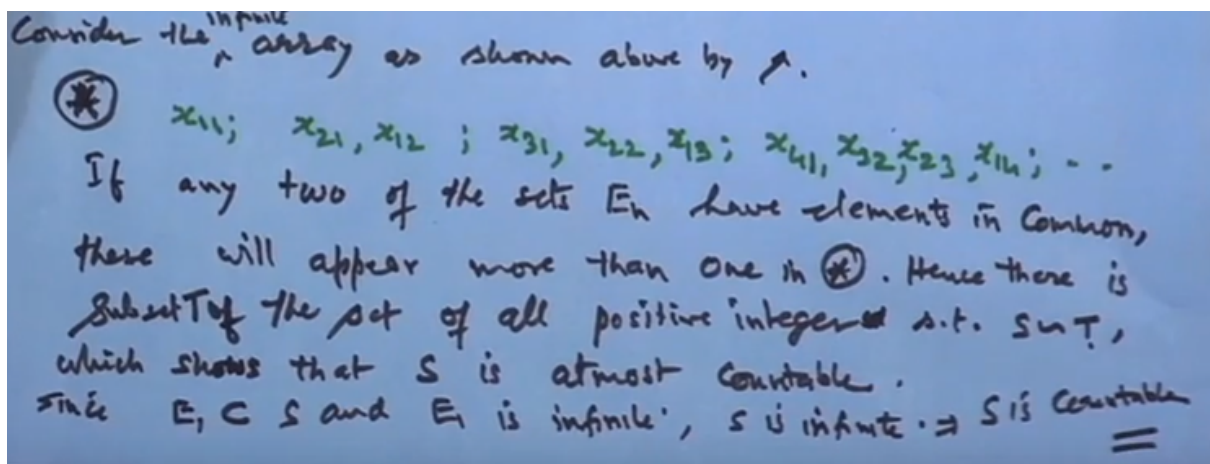 infinite
Consider the ^ array as shown above by ↗.
⊛
x₁₁; x₂₁, x₁₂ ; x₃₁, x₂₂, x₁₃; x₄₁, x₃₂, x₂₃, x₁₄; ...
If any two of the sets Eₙ have elements in Common,
these will appear more than one in ⊛. Hence there is
subset T of the set of all positive integers s.t. S ~ T,
which shows that S is atmost Countable.
Since E₁ ⊂ S and E₁ is infinite, S is infinite. ⇒ S is Countable